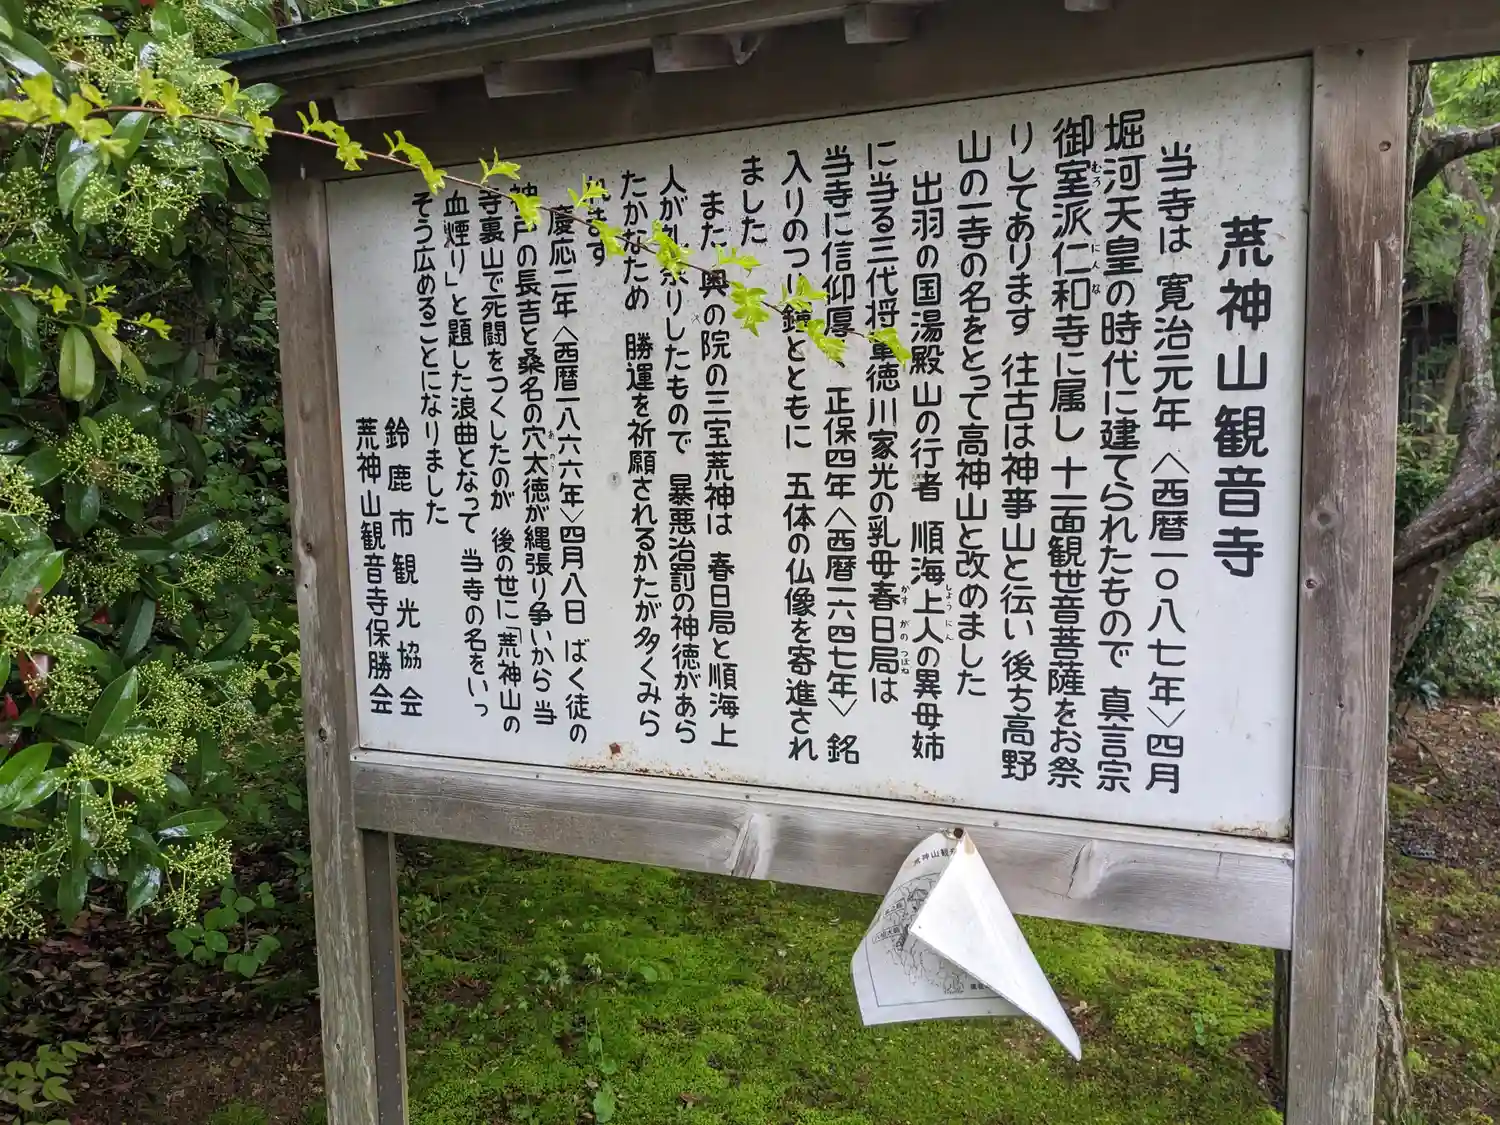 荒神山観音寺
当寺は 寛治元年〈西暦一〇八七年〉四月
堀河天皇の時代に建てられたもので 真言宗
御室派仁和寺に属し 十一面観世音菩薩をお祭
りしてあります 往古は神事山と伝い 後ち高野
山の一寺の名をとって高神山と改めました
出羽の国湯殿山の行者 順海上人の異母姉
に当る三代将軍徳川家光の乳母春日局は
当寺に信仰厚 正保四年〈西暦一六四七年〉銘
入りのつり鐘とともに 五体の仏像を寄進され
ました
また 奥の院の三宝荒神は 春日局と順海上
人が礼祭りしたもので 暴悪治罰の神徳があら
たかなため 勝運を祈願されるかたが多くみら
れます
慶応二年〈西暦一八六六年〉四月八日 ばく徒の
神戸の長吉と桑名の穴太徳が縄張り争いから当
寺裏山で死闘をつくしたのが 後の世に「荒神山の
血煙り」と題した浪曲となって 当寺の名をいっ
そう広めることになりました
鈴鹿市観光協会
荒神山観音寺保勝会